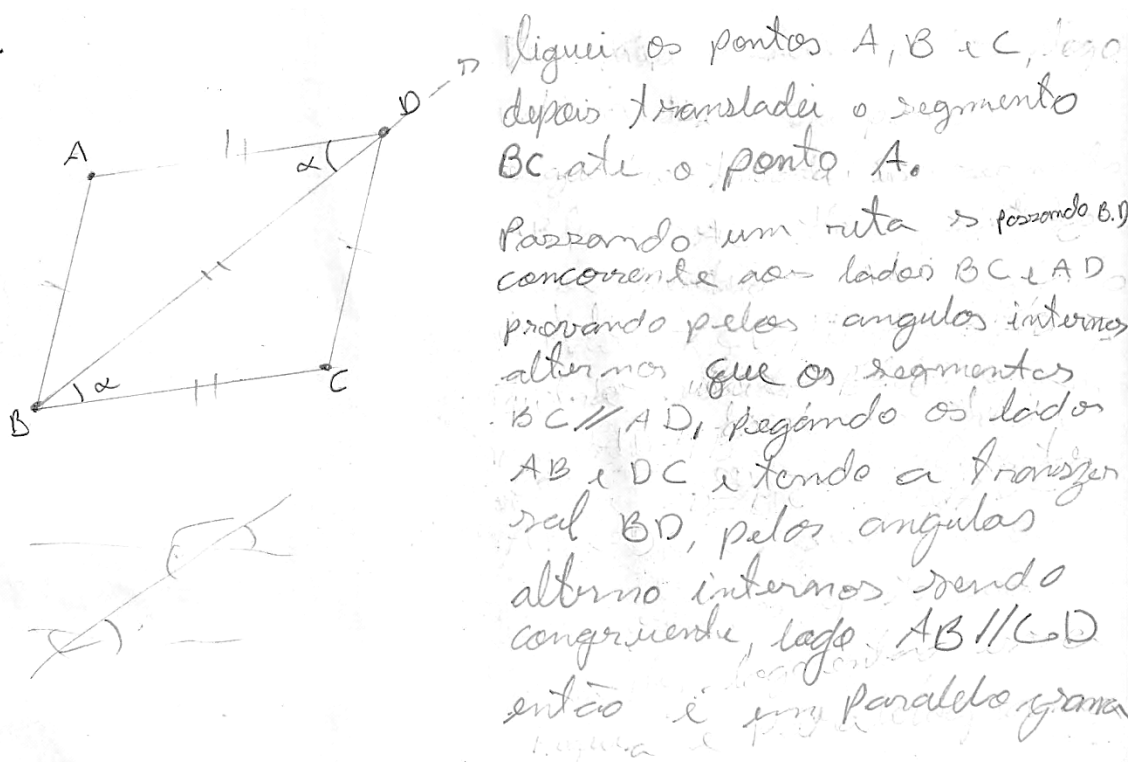 A
D
α
B
α
C
liguei os pontos A, B e C, logo
depois transladei o segmento
BC até o ponto A.
Passando um reta s passando B.D
concorrente aos lados BC e AD
provando pelos angulos internos
alternos que os segmentos
BC // AD, pegando os lados
AB e DC e tendo a transver
sal BD, pelos angulos
alterno internos sendo
congruente, logo AB // CD
então é um Paralelo grama